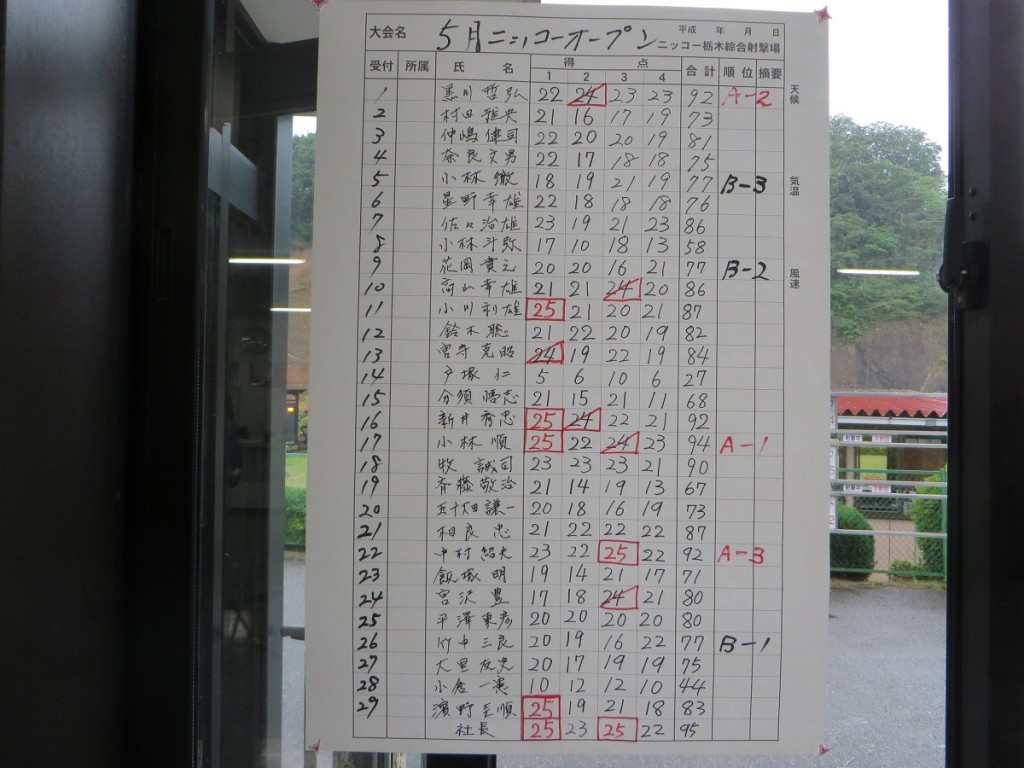 大会名 5月ニッコーオープン 平成 年 月 日
ニッコー栃木綜合射撃場
受付 所属 氏 名 得 点 合計 順位 摘要
1 2 3 4
天候
気温
風速
1 黒川哲弘 22 24 23 23 92 A-2
2 村田雅央 21 16 17 19 73
3 仲嶋健司 22 20 20 19 81
4 奈良文男 22 17 18 18 75
5 小林徹 18 19 21 19 77 B-3
6 星野幸雄 22 18 18 18 76
7 佐口治雄 23 19 21 23 86
8 小林斗弥 17 10 18 13 58
9 花岡貴之 20 20 16 21 77 B-2
10 高山幸雄 21 21 24 20 86
11 小川利雄 25 21 20 21 87
12 鈴木聡 21 22 20 19 82
13 宮寺克昭 24 19 22 19 84
14 戸塚仁 5 6 10 6 27
15 21 15 21 11 68
16 新井 忠 25 24 22 21 92
17 小林順 25 22 24 23 94 A-1
18 牧誠司 23 23 23 21 90
19 斉藤敬治 21 14 19 13 67
20 五十畑謙一 20 18 16 19 73
21 相良忠 21 22 22 22 87
22 中村紹夫 23 22 25 22 92 A-3
23 飯塚明 19 14 21 17 71
24 宮沢豊 17 18 24 21 80
25 平澤東彦 20 20 20 20 80
26 竹中三良 20 19 16 22 77 B-1
27 大里友 20 17 19 19 75
28 小倉一憲 10 12 12 10 44
29 濱野 順 25 19 21 18 83
社長 25 23 25 22 95